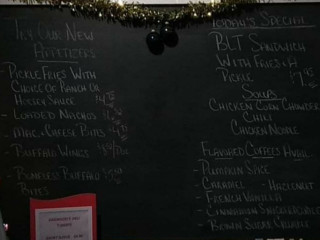 Try Our New
Appetizers
- Pickle Fries With
Choice Of Ranch Or
Honey Sauce
- Loaded Nachos
- Mac & Cheese Bites
- Buffalo Wings
- Boneless Buffalo
Bites
Today's Special
BLT Sandwich
With Fries & A
Pickle
Soups
Chicken Corn Chowder
Chili
Chicken Noodle
Flavored Coffees Avail.
- Pumpkin Spice
- Caramel - Hazelnut
- French Vanilla
- Cinnamon Snickerdoodle
- Brown Sugar Crumble